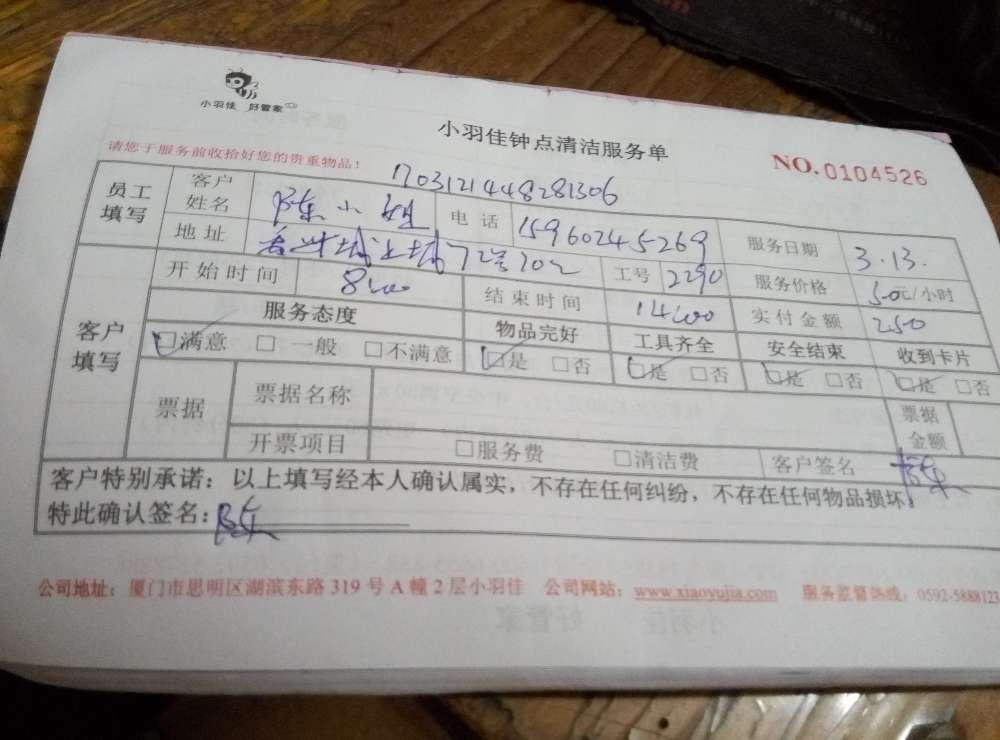 小羽佳 好管家
小羽佳钟点清洁服务单
请您于服务前收拾好您的贵重物品！
NO.0104526
170312144828130​6
员工填写 客户姓名 陈小姐 电话 15960245269 服务日期 3.13.
地址 上城72号202 工号 2290 服务价格 50元/小时
开始时间 8:00 结束时间 14:00 实付金额 250
客户填写 服务态度 物品完好 工具齐全 安全结束 收到卡片
☑满意 □一般 □不满意 ☑是 □否 ☑是 □否 ☑是 □否 ☑是 □否
票据 票据名称 票据金额
开票项目 □服务费 □清洁费 客户签名 陈
客户特别承诺：以上填写经本人确认属实，不存在任何纠纷，不存在任何物品损坏，
特此确认签名：陈
公司地址：厦门市思明区湖滨东路 319 号 A 幢 2 层小羽佳 公司网站：www.xiaoyujia.com 服务监督热线：0592-5888123